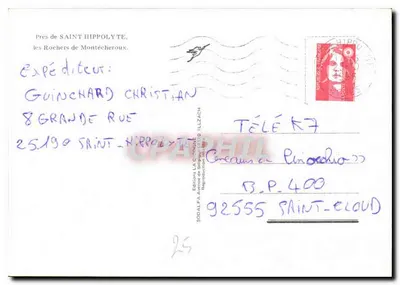 Près de SAINT HIPPOLYTE,
les Rochers de Montécheroux.
Expéditeur:
GUINCHARD CHRISTIAN
8 GRANDE RUE
25190 SAINT-HIPPOLYTE
TÉLÉ K7
Pinocchio >>
B.P. 400
92555 SAINT-CLOUD
25